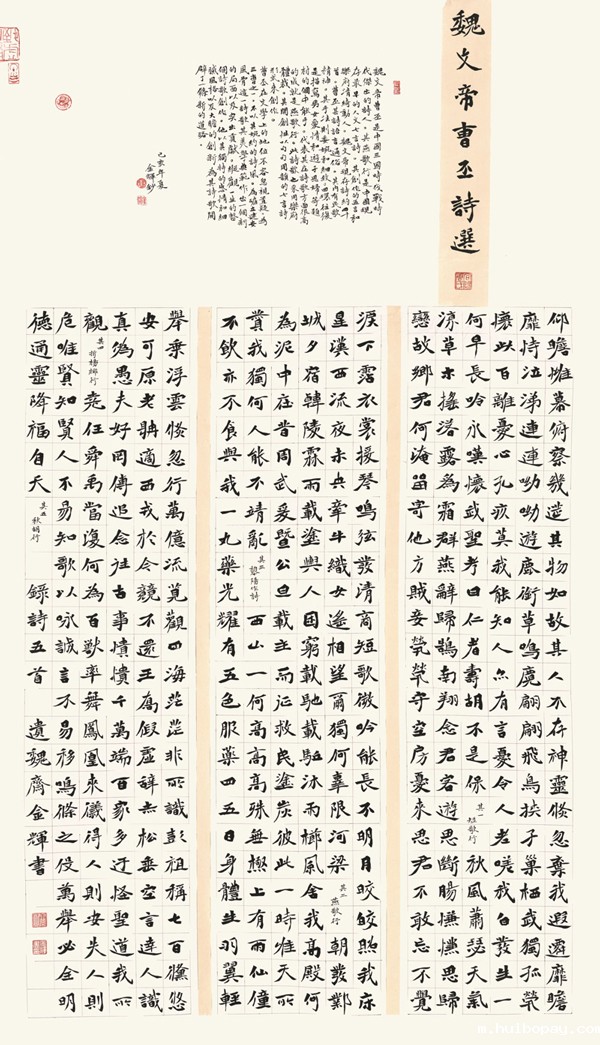 魏文帝曹丕詩選
魏文帝曹丕是中國三國時代戰時
代傑出的詩人其燕歌行是中國現
存最早的人文七言詩其創作的五言和
體裁其開創性以句句用韻的七言詩
形式來創作
曹丕在文學上的地位不容忽視
辟了一條新的道路
己亥年夏
金輝鈔
仰瞻帷幕俯察幾筵其物如故其人不存神靈倏忽棄我遐遷靡瞻
靡恃泣涕連連呦呦遊鹿銜草鳴麑翩翩飛鳥挾子巢栖我獨孤煢
懷此百離憂心孔疚莫我能知人亦有言憂令人老嗟我白發生一
何早長吟永嘆懷我聖考曰仁者壽胡不是保 其一 短歌行 秋風蕭瑟天氣
涼草木搖落露為霜群燕辭歸鵠南翔念君客遊思斷腸慊慊思歸
戀故鄉君何淹留寄他方賤妾煢煢守空房憂來思君不敢忘不覺
淚下霑衣裳接琴鳴弦發清商短歌微吟能長不明月皎皎照我床
星漢西流夜未央牽牛織女遙相望爾獨何辜限河梁 其二 燕歌行 朝發鄴
城夕宿韓陵霖雨載塗輿人困窮載馳載驅沐雨櫛風舍我高殿何
為泥中在昔周武爰暨公旦載主而征救民塗炭彼此一時惟天所
賞我獨何人能不靖亂 其三 黎陽作詩 西山一何高高高殊無極上有兩仙僮
不飲亦不食與我一丸藥光耀有五色服藥四五日身體生羽翼輕
舉乘浮雲倏忽行萬億流覽觀四海茫茫非所識彭祖稱七百悠悠
安可原老聃適西戎於今竟不還王喬假虛辭赤松垂空言達人識
真偽愚夫好罔傳追念往古事憒憒千萬端百家多迂怪聖道我所
觀 其四 折楊柳行 堯任舜禹當復何為百獸率舞鳳凰來儀得人則安失人則
危唯賢知賢人不易知歌以詠誠言不易移鳴條之役萬舉必全明
德通靈降福自天 其五 秋胡行 錄詩五首 遺魏齊金輝書
m.huibopau.com